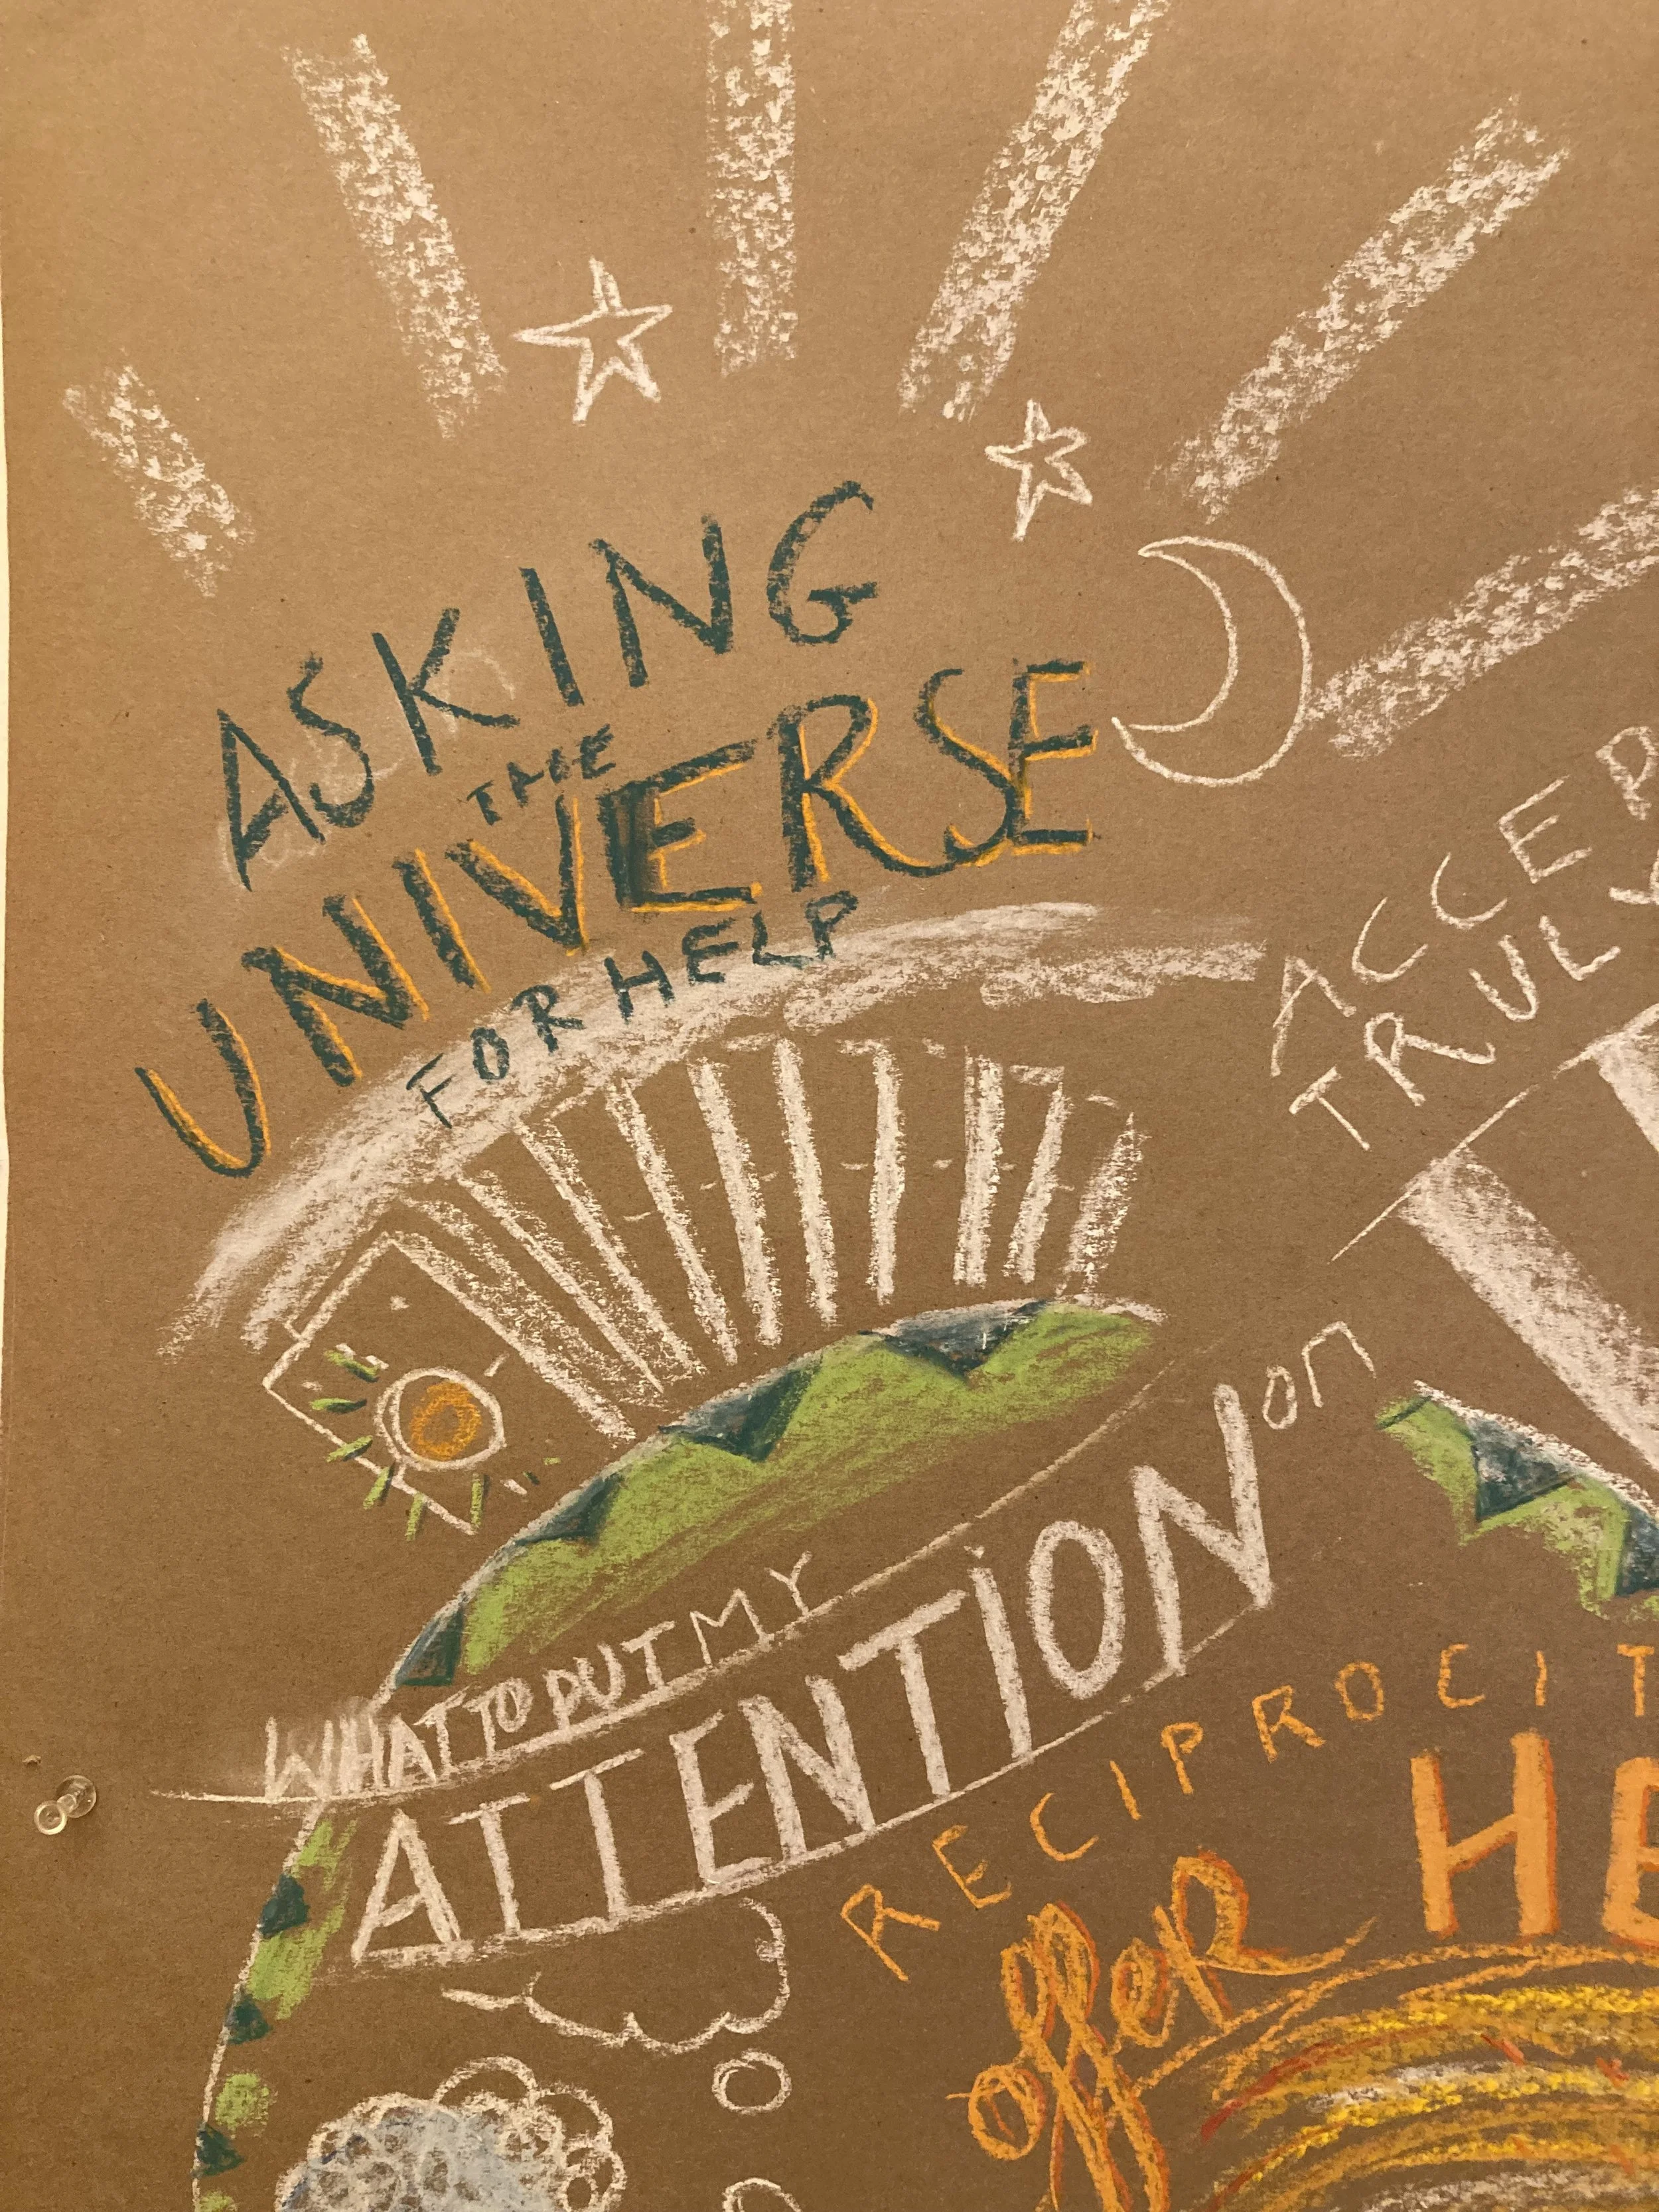 ASKING
THE
UNIVERSE
FOR HELP
ACCEP
TRULY
WHAT TO PUT MY
ATTENTION on
RECIPROCIT
offer HE